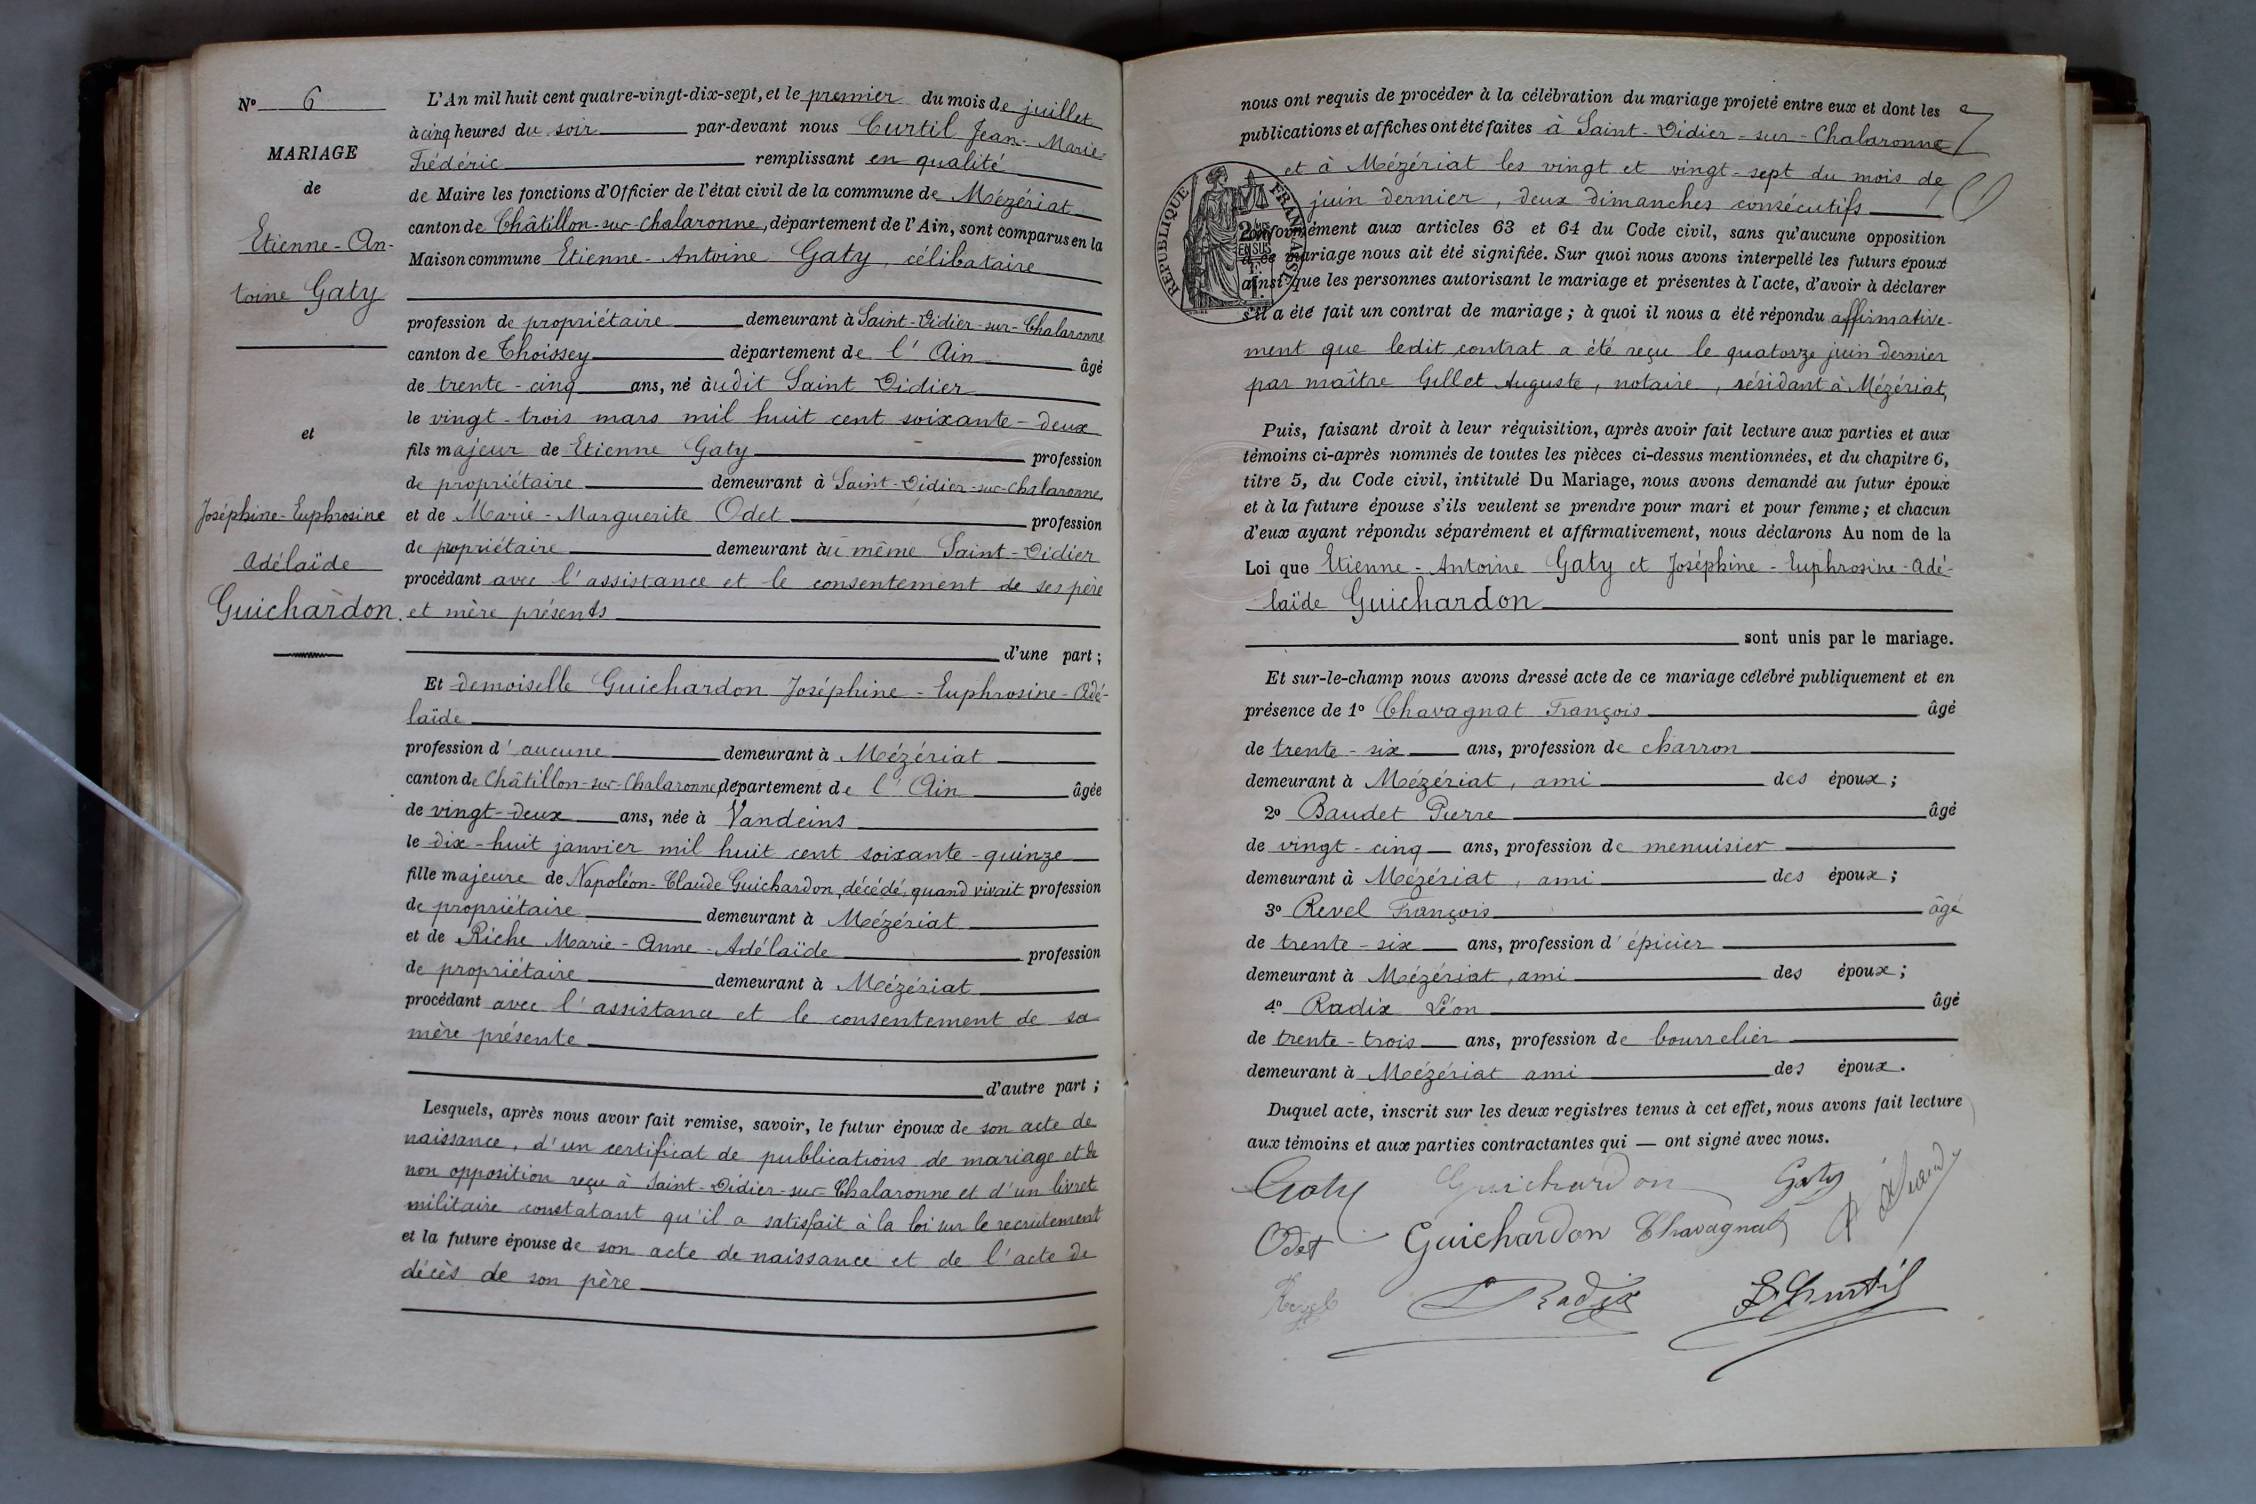 N° 6
MARIAGE
de
Etienne-An-
toine Gaty
et
Joséphine-Euphrosine
Adélaïde
Guichardon.
L'An mil huit cent quatre-vingt-dix-sept, et le premier du mois de juillet
à cinq heures du soir par-devant nous Curtil Jean-Marie-
Frédéric remplissant en qualité
de Maire les fonctions d'Officier de l'état civil de la commune de Mézériat
canton de Châtillon-sur-Chalaronne, département de l'Ain, sont comparus en la
Maison commune Etienne-Antoine Gaty, célibataire
profession de propriétaire demeurant à Saint-Didier-sur-Chalaronne
canton de Thoissey département de l'Ain âgé
de trente-cinq ans, né àudit Saint Didier
le vingt-trois mars mil huit cent soixante-deux
fils majeur de Etienne Gaty profession
de propriétaire demeurant à Saint-Didier-sur-Chalaronne,
et de Marie-Marguerite Odet profession
de propriétaire demeurant àu même Saint-Didier
procédant avec l'assistance et le consentement de ses père
et mère présents
d'une part ;
Et demoiselle Guichardon Joséphine-Euphrosine-Adé-
laïde
profession d'aucune demeurant à Mézériat
canton de Châtillon-sur-Chalaronne, département de l'Ain âgée
de vingt-deux ans, née à Vandeins
le dix-huit janvier mil huit cent soixante-quinze
fille majeure de Napoléon-Claude Guichardon, décédé, quand vivait profession
de propriétaire demeurant à Mézériat
et de Riche Marie-Anne-Adélaïde profession
de propriétaire demeurant à Mézériat
procédant avec l'assistance et le consentement de sa
mère présente
d'autre part ;
Lesquels, après nous avoir fait remise, savoir, le futur époux de son acte de
naissance, d'un certificat de publications de mariage et de
non opposition reçu à Saint-Didier-sur-Chalaronne et d'un livret
militaire constatant qu'il a satisfait à la loi sur le recrutement
et la future épouse de son acte de naissance et de l'acte de
décès de son père
nous ont requis de procéder à la célébration du mariage projeté entre eux et dont les
publications et affiches ont été faites à Saint-Didier-sur-Chalaronne
et à Mézériat les vingt et vingt-sept du mois de
juin dernier, deux dimanches consécutifs
RÉPUBLIQUE FRANÇAISE
conformément aux articles 63 et 64 du Code civil, sans qu'aucune opposition
à ce mariage nous ait été signifiée. Sur quoi nous avons interpellé les futurs époux
ainsi que les personnes autorisant le mariage et présentes à l'acte, d'avoir à déclarer
s'il a été fait un contrat de mariage ; à quoi il nous a été répondu affirmative-
ment que ledit contrat a été reçu le quatorze juin dernier
par maître Gillet Auguste, notaire, résidant à Mézériat,
Puis, faisant droit à leur réquisition, après avoir fait lecture aux parties et aux
témoins ci-après nommés de toutes les pièces ci-dessus mentionnées, et du chapitre 6,
titre 5, du Code civil, intitulé Du Mariage, nous avons demandé au futur époux
et à la future épouse s'ils veulent se prendre pour mari et pour femme ; et chacun
d'eux ayant répondu séparément et affirmativement, nous déclarons Au nom de la
Loi que Etienne-Antoine Gaty et Joséphine-Euphrosine-Adé-
laïde Guichardon
sont unis par le mariage.
Et sur-le-champ nous avons dressé acte de ce mariage célébré publiquement et en
présence de 1° Chavagnat François âgé
de trente-six ans, profession de charron
demeurant à Mézériat, ami des époux ;
2° Baudet Pierre âgé
de vingt-cinq ans, profession de menuisier
demeurant à Mézériat, ami des époux ;
3° Revel François âgé
de trente-six ans, profession d'épicier
demeurant à Mézériat, ami des époux ;
4° Radix Léon âgé
de trente-trois ans, profession de bourrelier
demeurant à Mézériat ami des époux.
Duquel acte, inscrit sur les deux registres tenus à cet effet, nous avons fait lecture
aux témoins et aux parties contractantes qui — ont signé avec nous.
Gaty Guichardon Gaty
Odet Guichardon Chavagnat
Revel L Radix F. Curtil